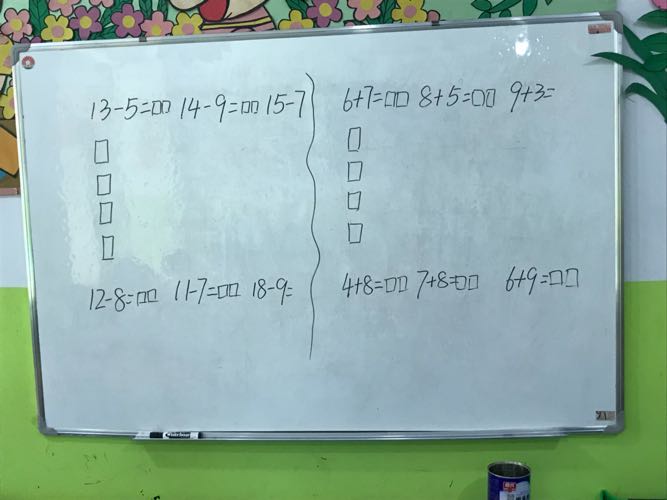 13-5=□□ 14-9=□□ 15-7
□
□
□
□
12-8=□□ 11-7=□□ 18-9=
6+7=□□ 8+5=□□ 9+3=
□
□
□
□
4+8=□□ 7+8=□□ 6+9=□□